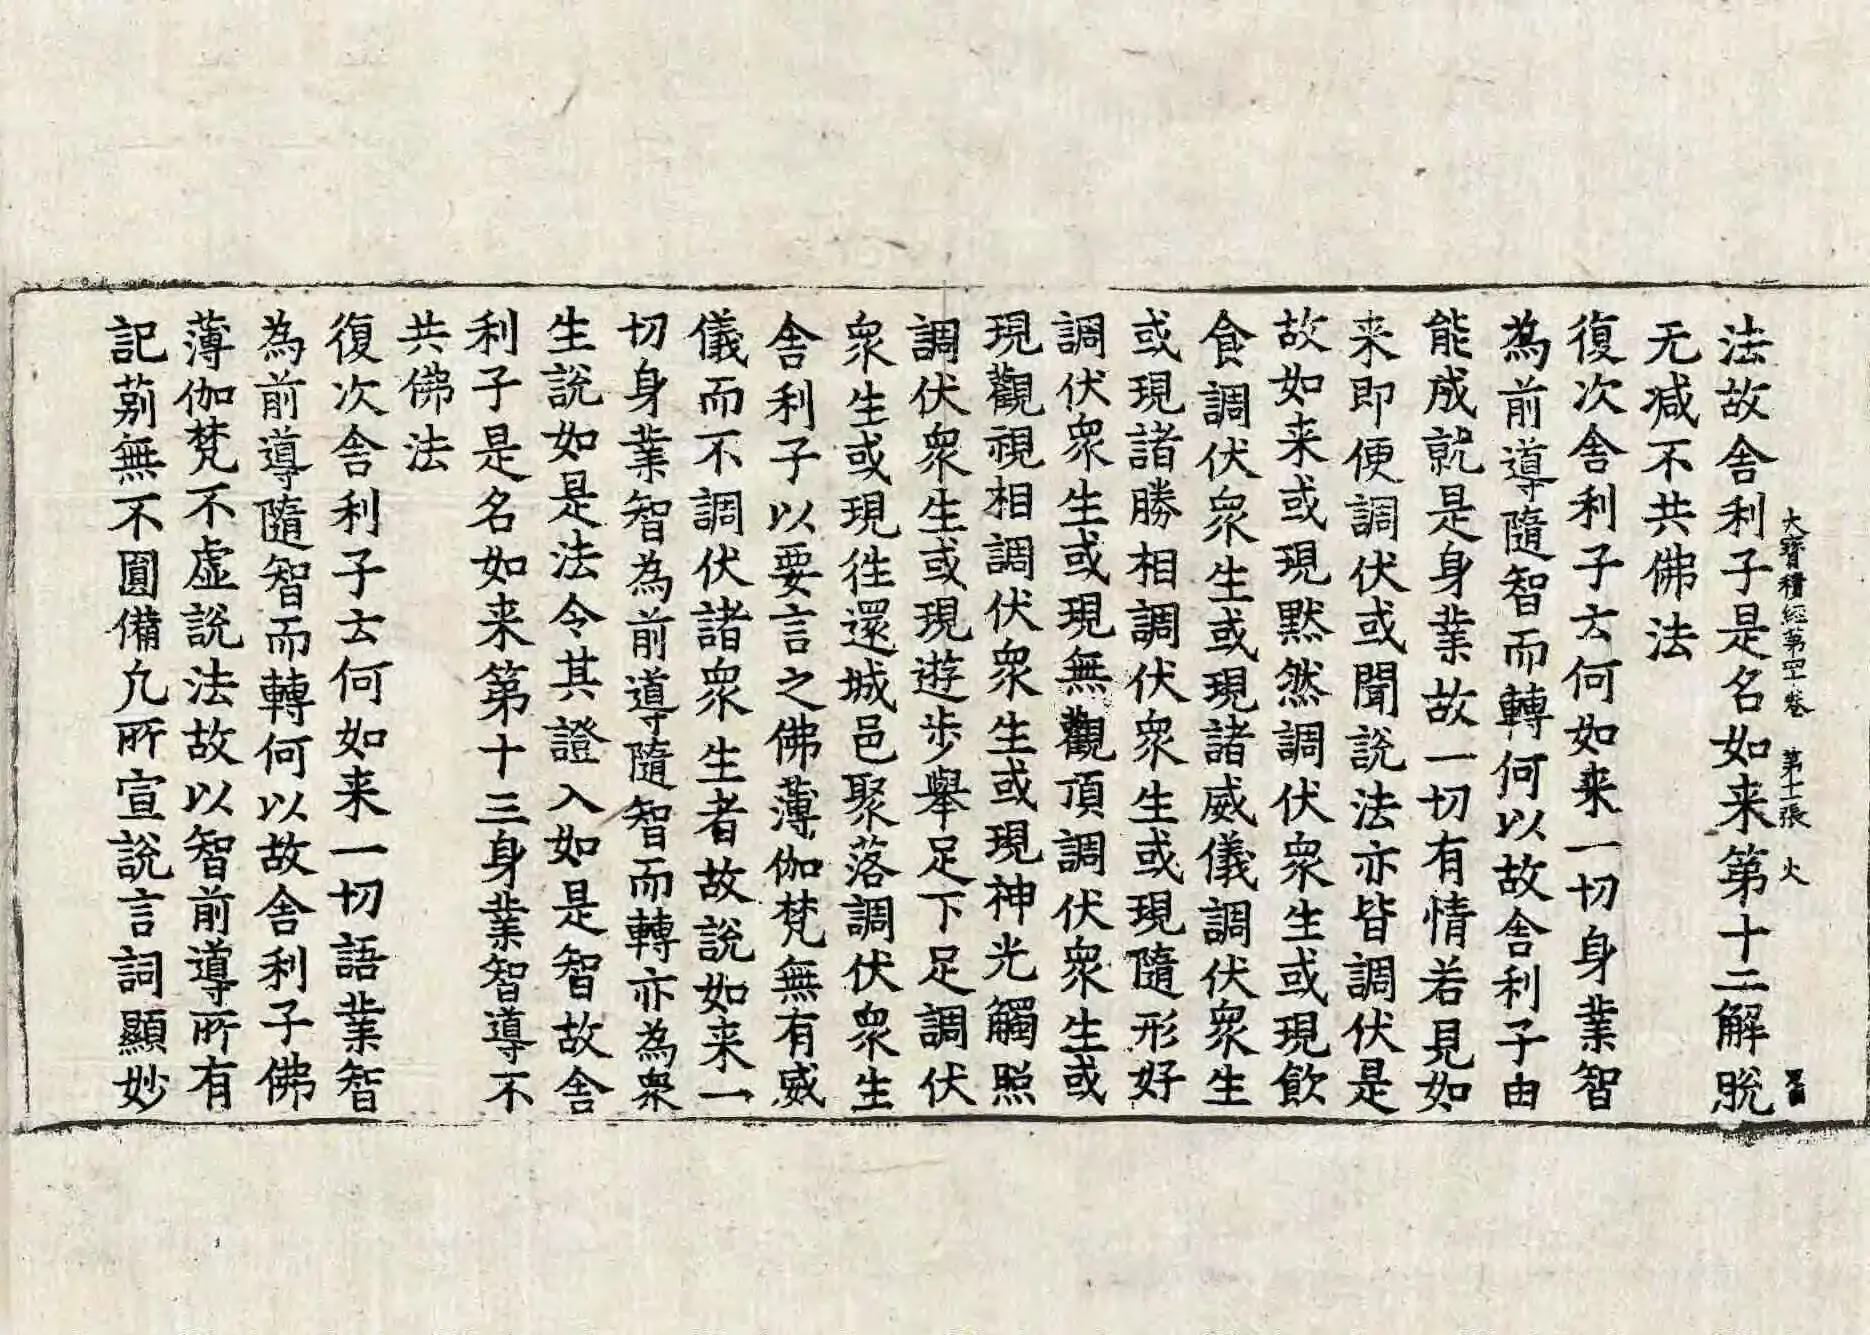 大寶積經第四十卷 第十二張 火
法故舍利子是名如来第十二解脫
无减不共佛法
復次舍利子云何如来一切身業智
為前導隨智而轉何以故舍利子由
能成就是身業故一切有情若見如
来即便調伏或聞說法亦皆調伏是
故如来或現默然調伏衆生或現飲
食調伏衆生或現諸威儀調伏衆生
或現諸勝相調伏衆生或現隨形好
調伏衆生或現無觀頂調伏衆生或
現觀視相調伏衆生或現神光觸照
調伏衆生或現遊步舉足下足調伏
衆生或現徃還城邑聚落調伏衆生
舍利子以要言之佛薄伽梵無有威
儀而不調伏諸衆生者故說如来一
切身業智為前導隨智而轉亦為衆
生說如是法令其證入如是智故舍
利子是名如来第十三身業智導不
共佛法
復次舍利子云何如来一切語業智
為前導隨智而轉何以故舍利子佛
薄伽梵不虛說法故以智前導所有
記莂無不圓備凢所宣說言詞顯妙